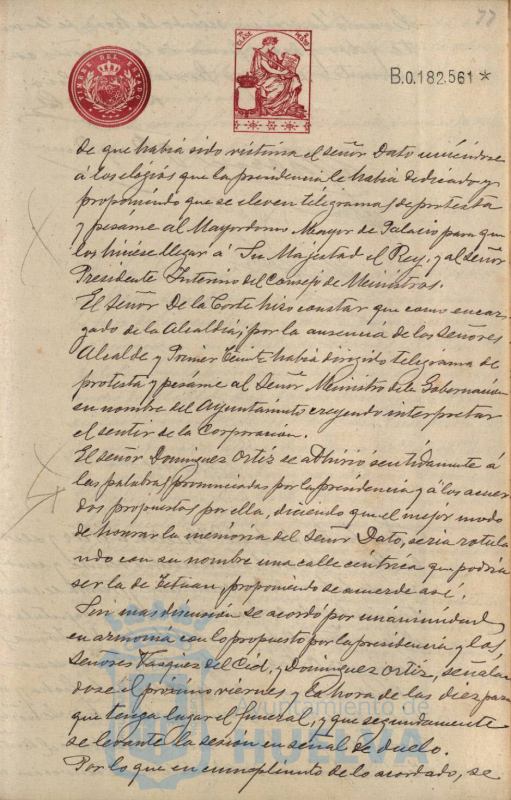 77
TIMBRE DEL ESTADO
8ª CLASE 1 PESETA
B.0.182.561*
de que había sido víctima el señor Dato uniéndose
á los elogios que la presidencia le había dedicado y
proponiendo que se eleven telegramas de protesta
y pesáme al Mayordomo Mayor de Palacio para que
los hiciese llegar á Su Majestad el Rey, y al señor
Presidente Interino del Consejo de Ministros.
El señor De la Corte hizo constar que como encar-
gado de la Alcaldía, por la ausencia de los señores
Alcalde y Primer Tente había dirigido telegrama de
protesta y pesáme al Señor Ministro de la Gobernación
en nombre del Ayuntamiento creyendo interpretar
el sentir de la Corporación.
El señor Dominguez Ortiz se adhirió sentidamente á
las palabras pronunciadas por la presidencia y á los acuer-
dos propuestos por ella, diciendo que el mejor modo
de honrar la memoria del Señor Dato, sería rotula
ndo con su nombre una calle céntrica que podría
ser la de Tetuan, proponiendo se acuerde así.
Sin mas discusión se acordó por unanimidad
en armonía con lo propuesto por la presidencia y los
señores Vazquez del Cid, y Dominguez Ortiz, señalan
dose el próximo viernes y la hora de las diez para
que tenga lugar el funeral, y que seguidamente
se levante la sesión en señal de duelo.
Por lo que en cumplimiento de lo acordado, se
Ayuntamiento de
HUELVA